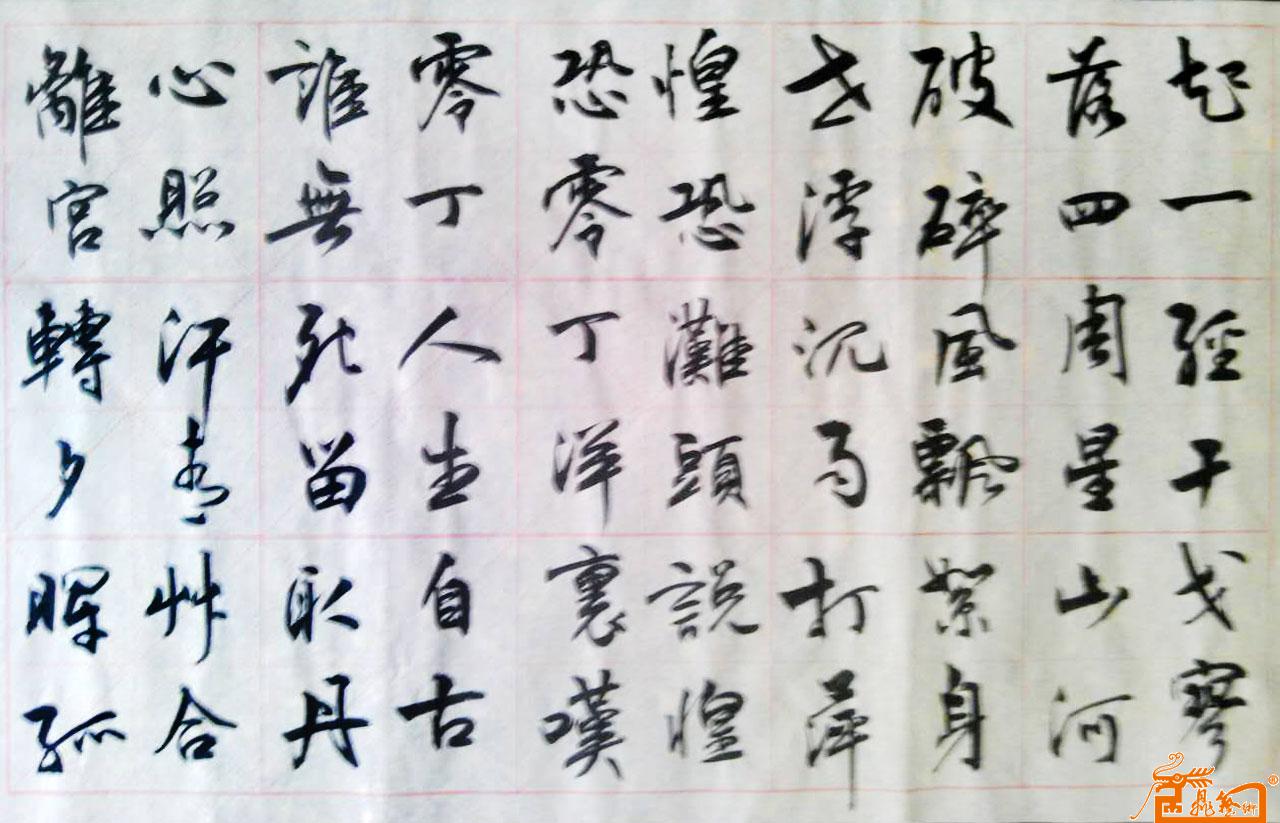 起一經干戈寥
落四周星山河
破碎風飄絮身
世浮沉雨打萍
惶恐灘頭說惶
恐零丁洋裏嘆
零丁人生自古
誰無死留取丹
心照汗青艸合
離宮轉夕暉孤